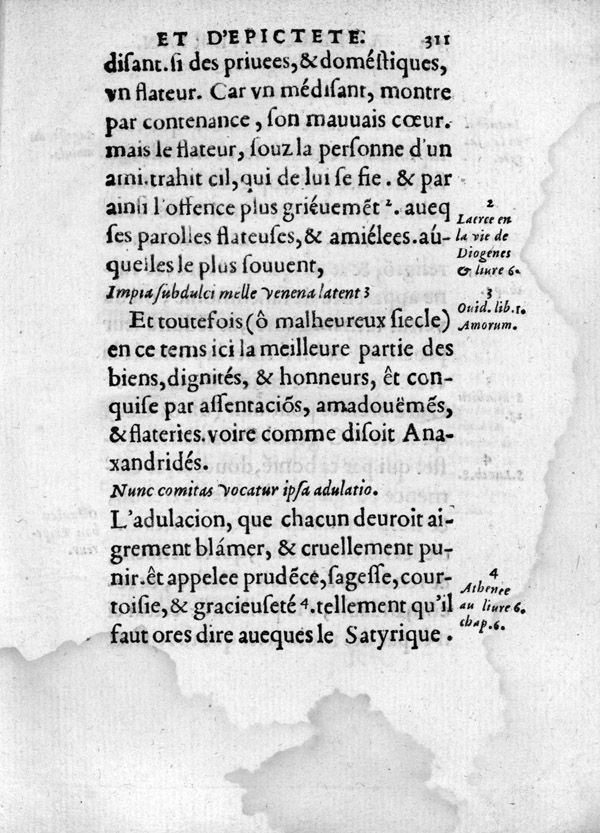 ET D'EPICTETE. 311
disant. si des priuees, & doméstiques,
vn flateur. Car vn médisant, montre
par contenance, son mauuais cœur.
mais le flateur, souz la personne d'un
ami. trahit cil, qui de lui se fie. & par
ainsi l'offence plus griéuemẽt ². aueq
ses parolles flateuses, & amiélees. aú-
quelles le plus souuent,
Impia sub dulci melle venena latent 3
Et toutefois (ô malheureux siecle)
en ce tems ici la meilleure partie des
biens, dignités, & honneurs, êt con-
quise par assentaciõs, amadouëmẽs,
& flateries. voire comme disoit Ana-
xandridés.
Nunc comitas vocatur ipsa adulatio.
L'adulacion, que chacun deuroit ai-
grement blámer, & cruellement pu-
nir. êt appelee prudẽce, sagesse, cour-
toisie, & gracieuseté ⁴. tellement qu'il
faut ores dire aueques le Satyrique.
2
Laërce en
la vie de
Diogenes
& liure 6.
3
Ouid. lib. 1.
Amorum.
4
Athenee
au liure 6.
chap. 6.